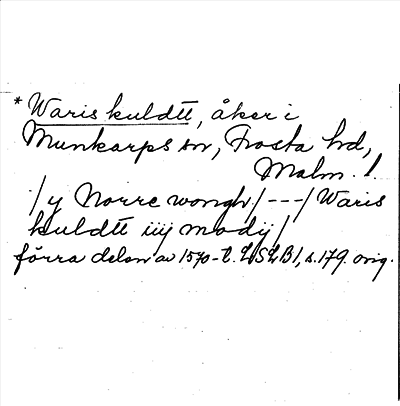 * Waris kuldtt, åker i
Munkarps sn, Frosta hd,
Malm. l.
/y Norre wongh/ --- / Waris
kuldtt iiij modij/
förra delen av 1570-t. LSLB1, s. 179. orig.